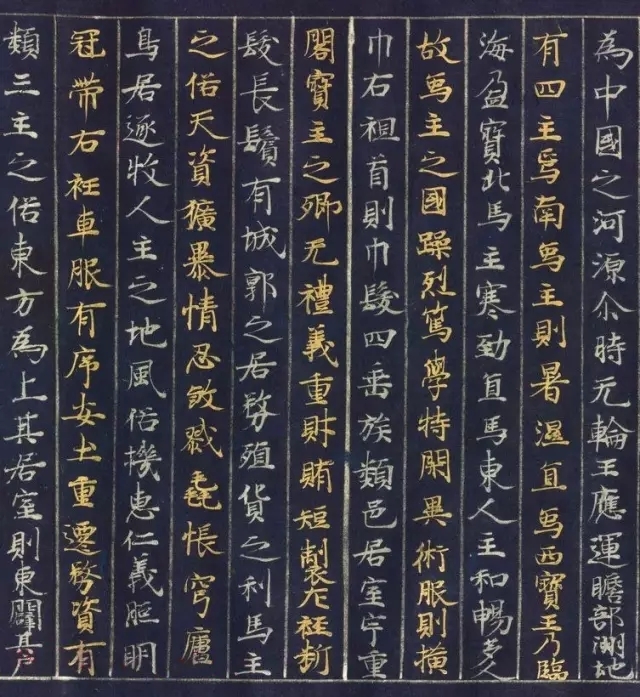 為中國之河源尒時无輪王應運瞻部洲地
有四主焉南象主則暑濕宜象西寶王乃臨
海盈寶北馬主寒勁宜馬東人主和暢多人
故象主之國躁烈篤學特閑異術服則橫
巾右袒首則巾髮四垂族類邑居室宇重
閣寶主之鄉无禮義重財賄短製左衽斬
髮長鬚有城郭之居務殖貨之利馬主
之俗天資獷暴情忍敘戮毳帳穹廬
鳥居逐牧人主之地風俗機惠仁義照明
冠带右衽車服有序安土重遷務資有
類三主之俗東方為上其居室則東闢其戶